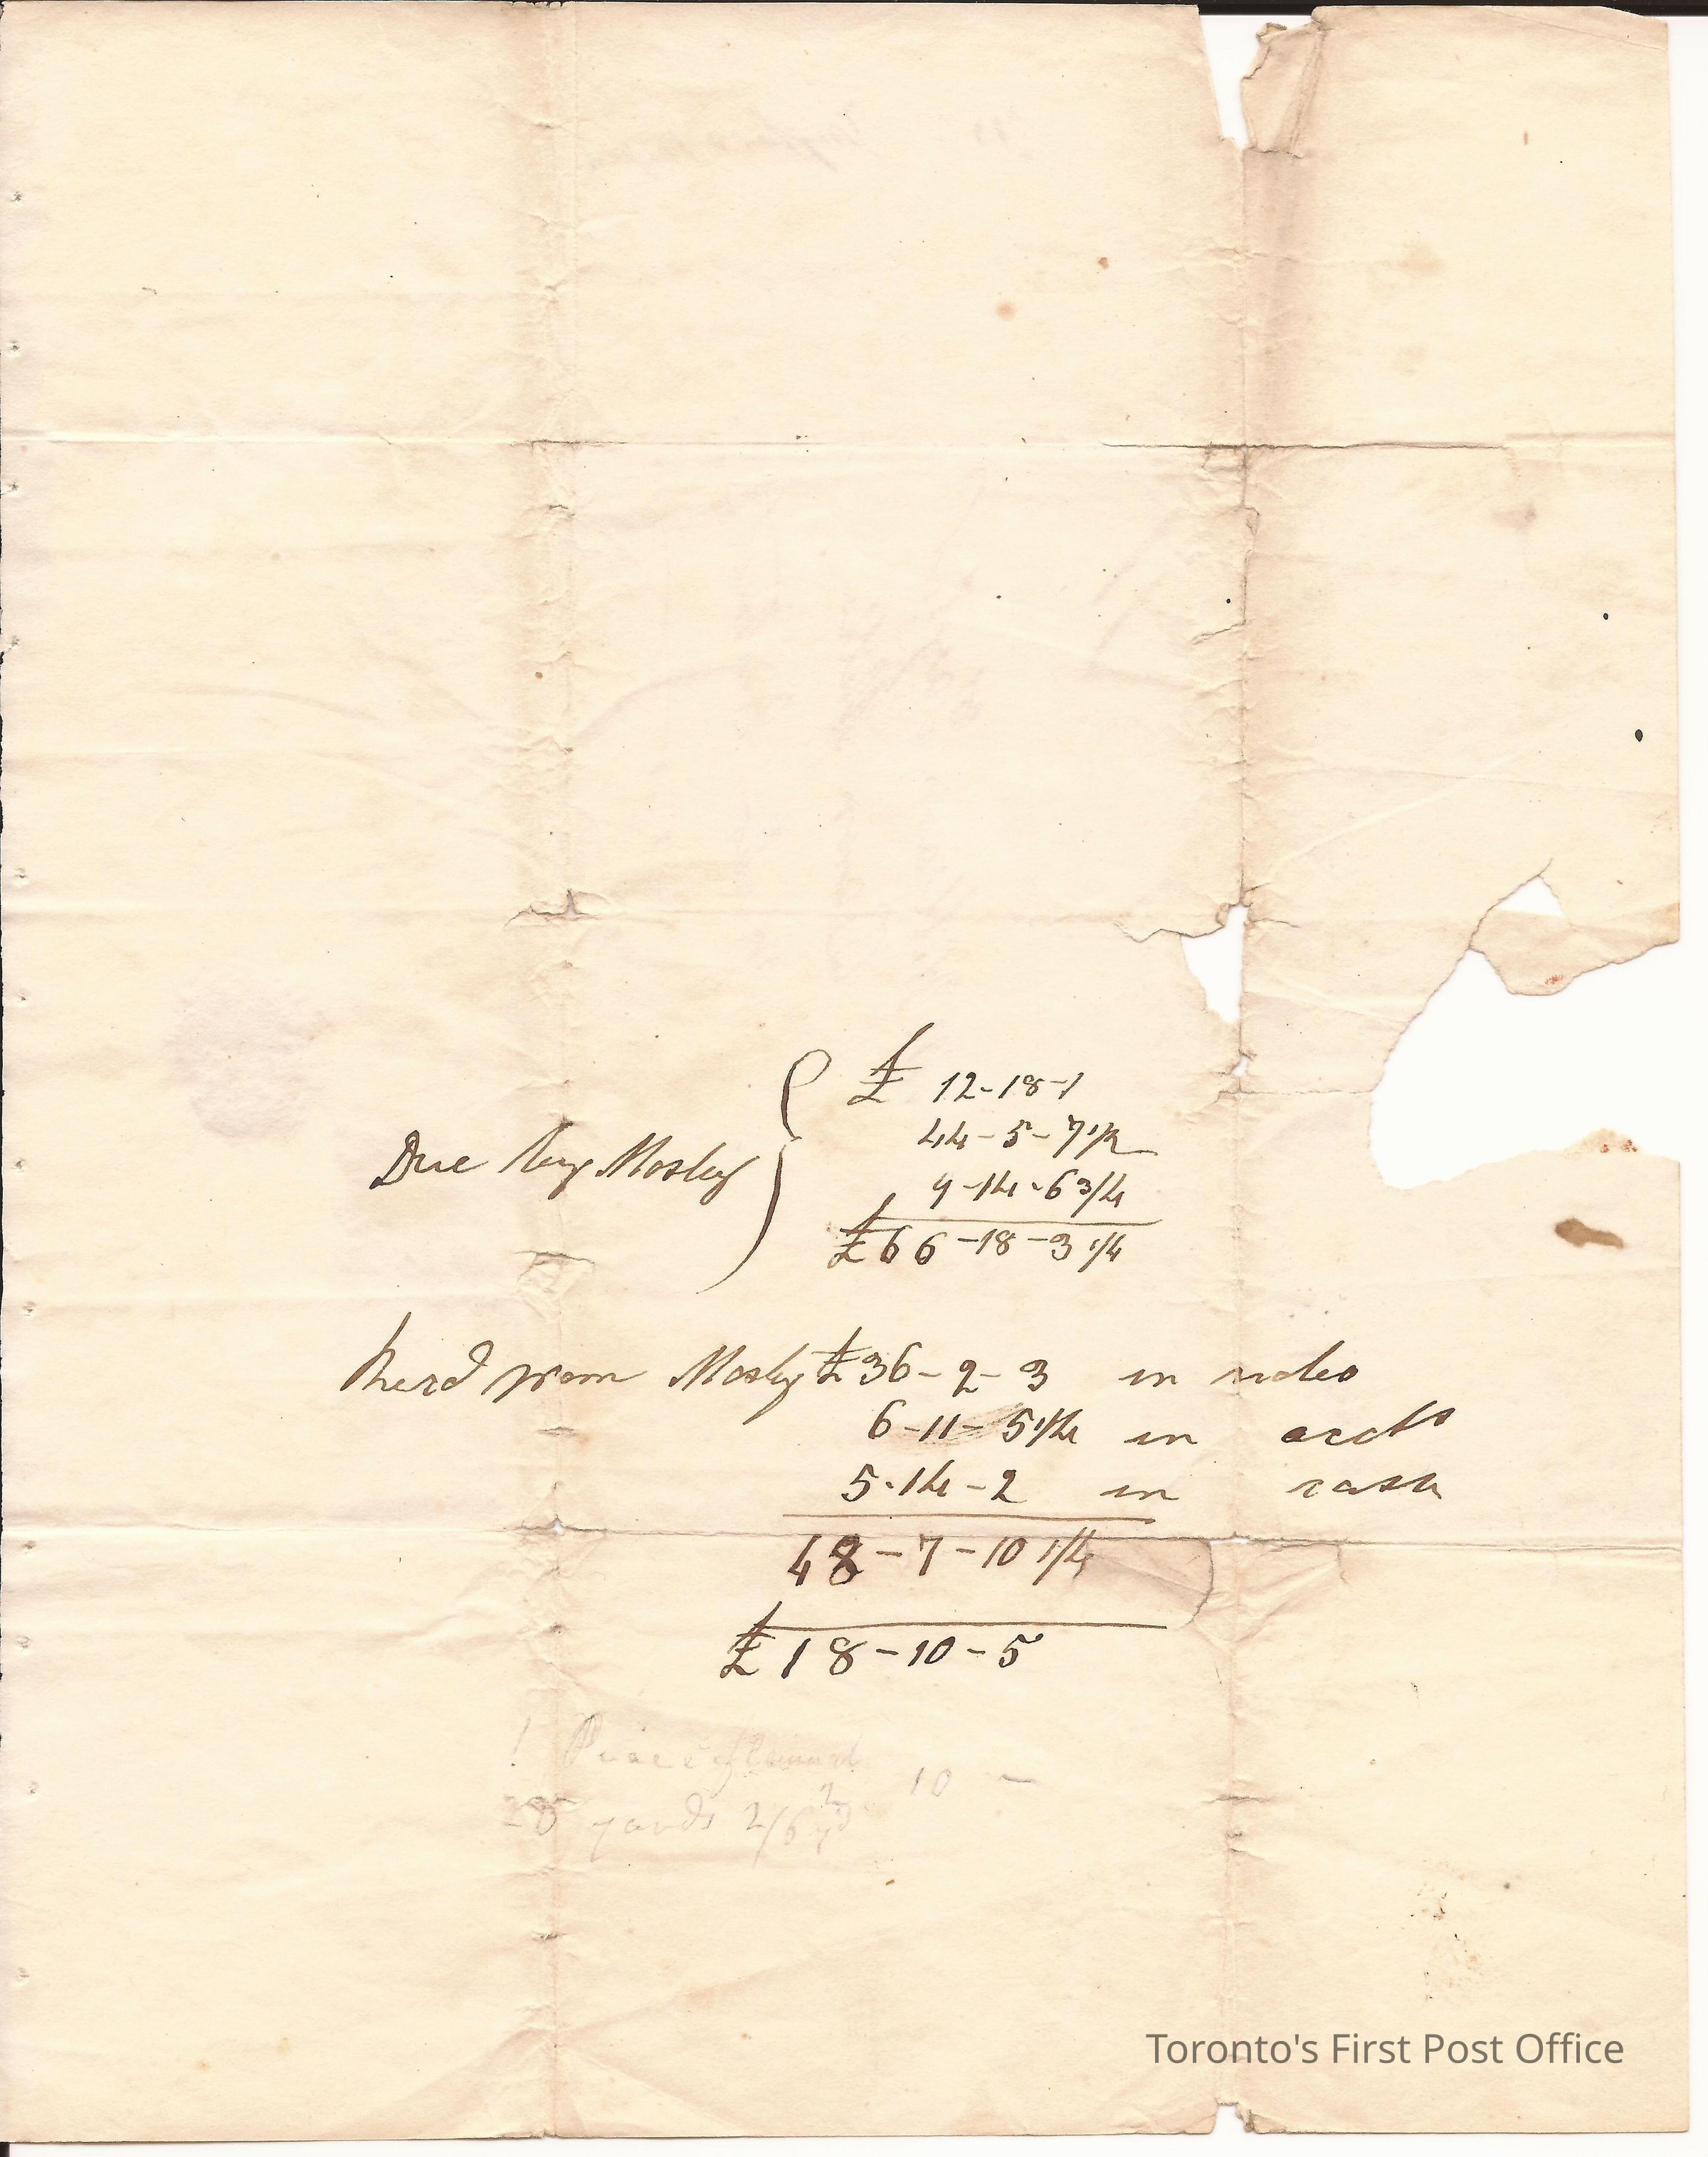 Due by Mosley { £ 12-18-1
44-5-7 1/2
9-14-6 3/4
£66-18-3 1/4
Recd from Mosley £36-2-3 in notes
6-11-5 1/4 in acct
5-14-2 in cash
48-7-10 1/4
£18-10-5
1 Piece of 10 -
yards 2/6 yd
Toronto's First Post Office